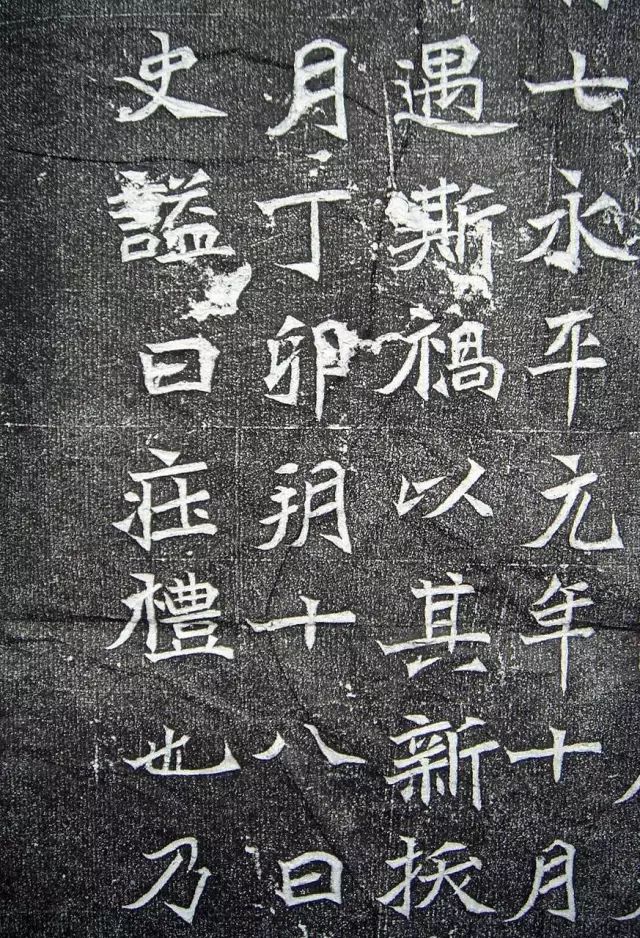 七永平元年十月
遇斯禍以其新
月丁卯朔十八日
史謚曰莊禮也乃